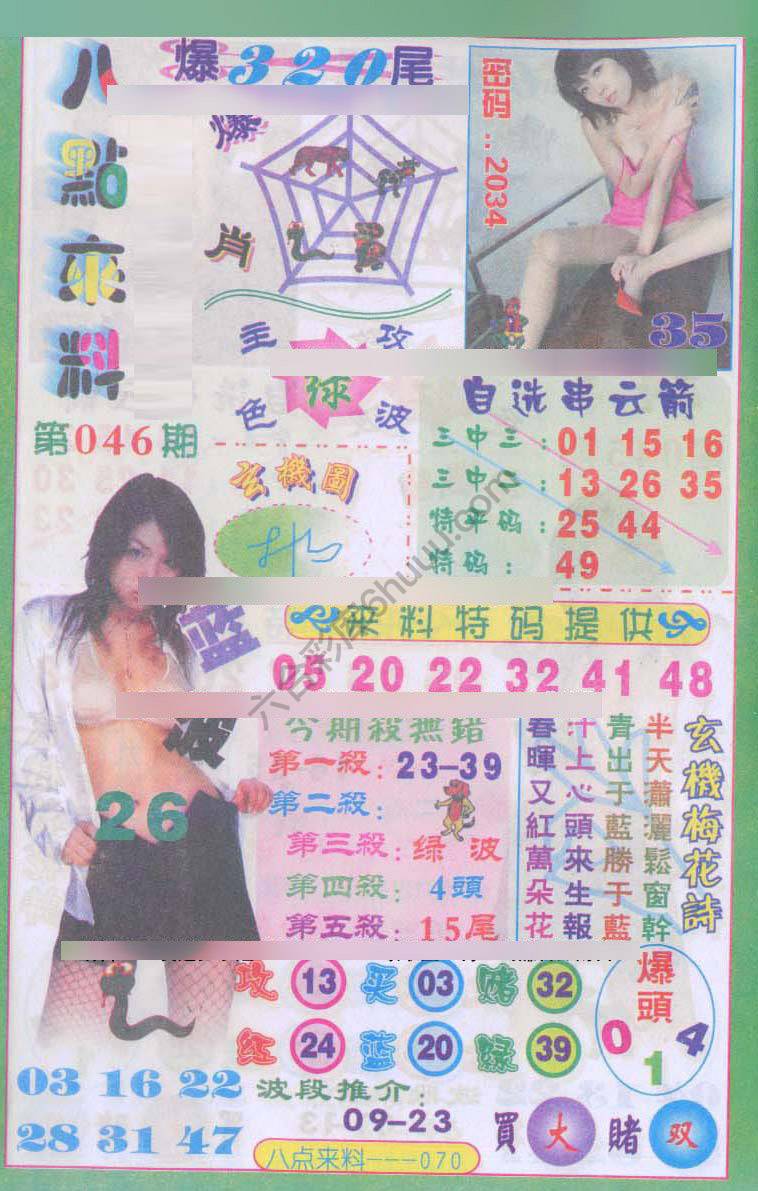 八點來料
爆320尾
爆肖
密码..2034
35
主攻
绿
色波
第046期
自选串云箭
三中三:01 15 16
三中二:13 26 35
特平码:25 44
特码:49
玄機圖
蓝波
26
来料特码提供
05 20 22 32 41 48
今期殺無錯
第一殺:23-39
第二殺:
第三殺:绿波
第四殺:4頭
第五殺:15尾
玄機梅花詩
半天瀟灑鬆窗幹
青出于藍勝于藍
汁上心頭來生報
春暉又紅萬朵花
攻 13 买 03 赌 32
红 24 蓝 20 绿 39
爆頭
0 1 4
03 16 22
28 31 47
波段推介:
09-23
買大賭双
八点来料---070
六合彩库6huuu.com